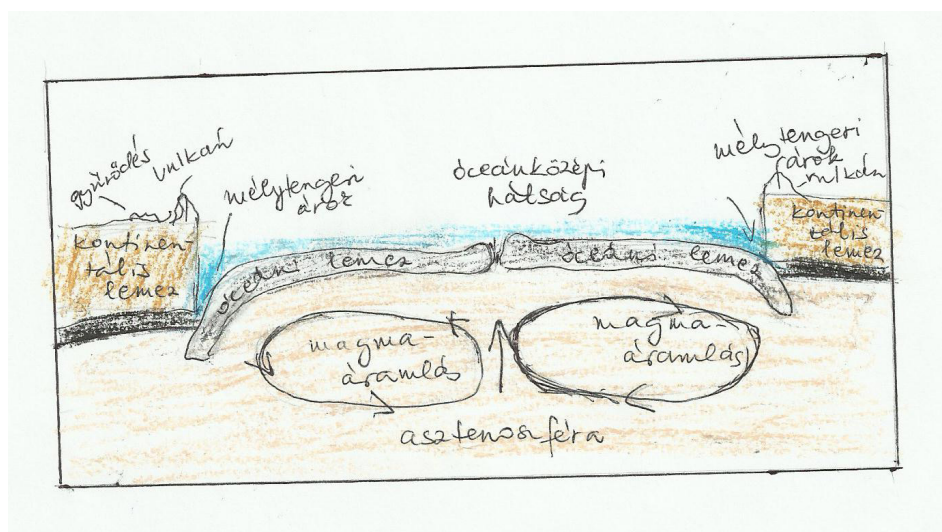 gyűrődés
vulkán
mélytengeri
árok
óceánközépi
hátság
mélytengeri
árok
vulkán
kontinen-
tális
lemez
óceáni lemez
óceáni lemez
kontinen-
tális
lemez
magma-
áramlás
magma-
áramlás
asztenoszféra